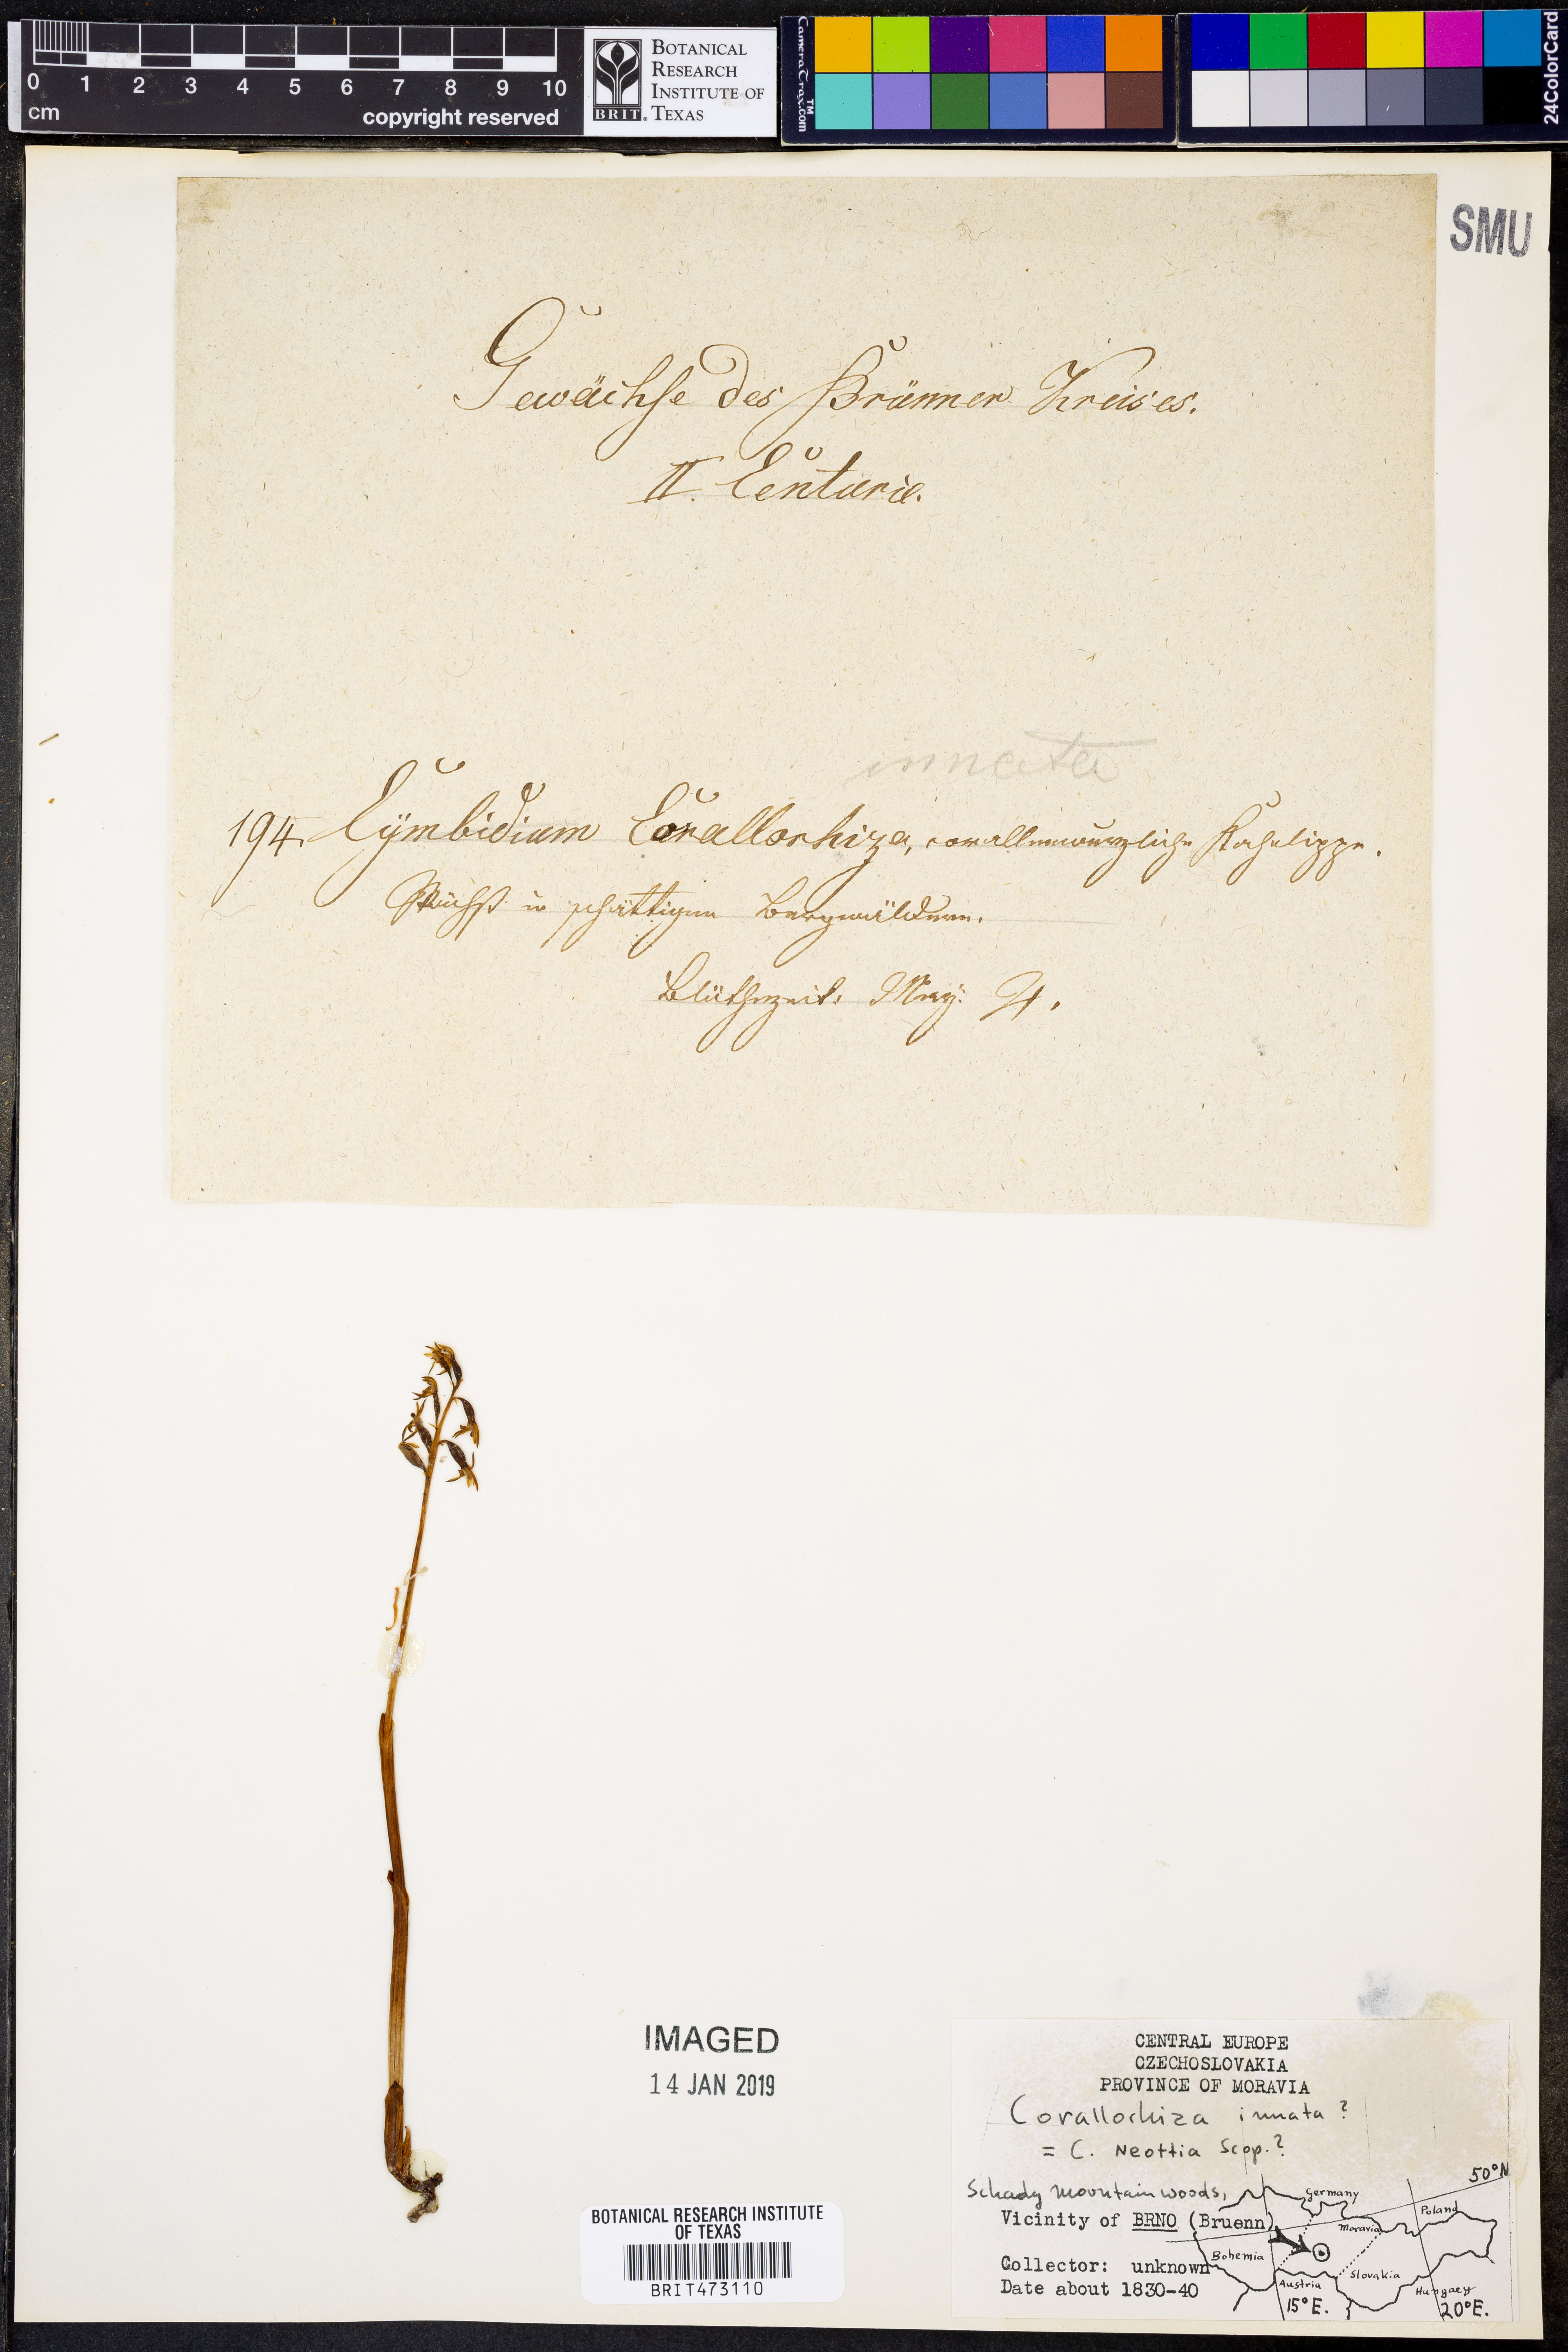 0 1 2 3 4 5 6 7 8 9 10
cm
copyright reserved
BRIT.
BOTANICAL
RESEARCH
INSTITUTE OF
TEXAS
CameraTrax.com
24ColorCard
SMU
Gewächse des Brünner Kreises.
II. Centurie.
innata
194. Cymbidium Corallorhiza, corallenwurzliche Kahnlippe.
Wächst in schattigen Bergwäldern.
Blüthezeit: May. ♃.
IMAGED
14 JAN 2019
BOTANICAL RESEARCH INSTITUTE
OF TEXAS
BRIT473110
CENTRAL EUROPE
CZECHOSLOVAKIA
PROVINCE OF MORAVIA
Corallorhiza innata?
= C. Neottia Scop.?
Schady mountain woods,
Vicinity of BRNO (Bruenn)
Collector: unknown
Date about 1830-40
50°N
Germany
Poland
Moravia
Bohemia
Slovakia
Austria
Hungary
15°E.
20°E.